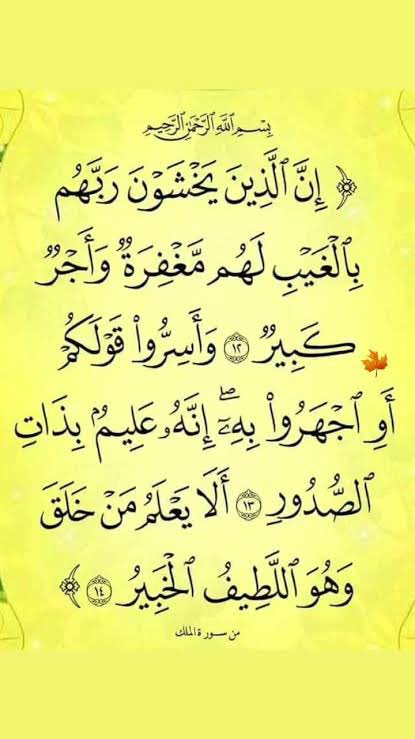 بِسْمِ ٱللَّهِ ٱلرَّحْمَٰنِ ٱلرَّحِيمِ
﴿ إِنَّ ٱلَّذِينَ يَخْشَوْنَ رَبَّهُم
بِٱلْغَيْبِ لَهُم مَّغْفِرَةٌ وَأَجْرٌ
كَبِيرٌ ١٢ وَأَسِرُّوا۟ قَوْلَكُمْ
أَوِ ٱجْهَرُوا۟ بِهِۦٓ ۖ إِنَّهُۥ عَلِيمٌۢ بِذَاتِ
ٱلصُّدُورِ ١٣ أَلَا يَعْلَمُ مَنْ خَلَقَ
وَهُوَ ٱللَّطِيفُ ٱلْخَبِيرُ ١٤ ﴾
من سورة الملك